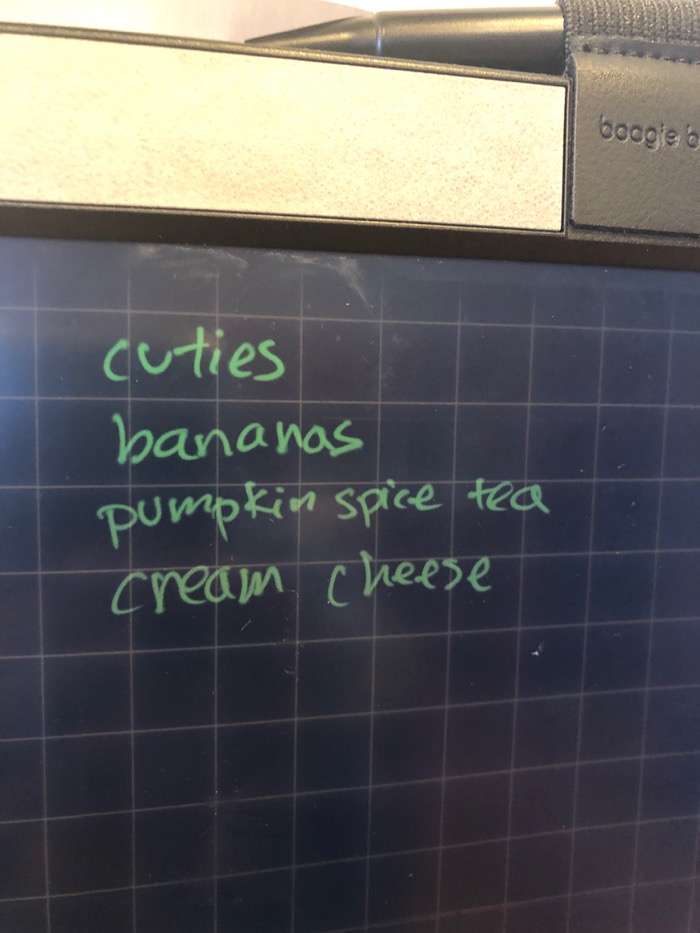 boogie b
cuties
bananas
pumpkin spice tea
cream cheese